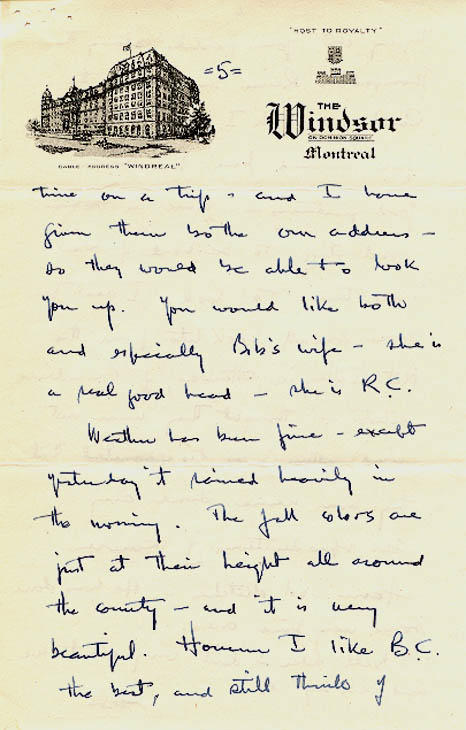 "HOST TO ROYALTY"
=5=
THE
Windsor
ON DOMINION SQUARE
Montreal
CABLE ADDRESS "WINDREAL"
time on a trip - and I have
given them bothe our address -
so they would be able to look
you up. You would like both
and especially Bob's wife - she is
a real good head - she is R.C.
Weather has been fine - except
yesterday it rained heavily in
the morning. The fall colors are
just at their height all around
the county - and it is very
beautiful. However I like B.C.
the best, and still think of